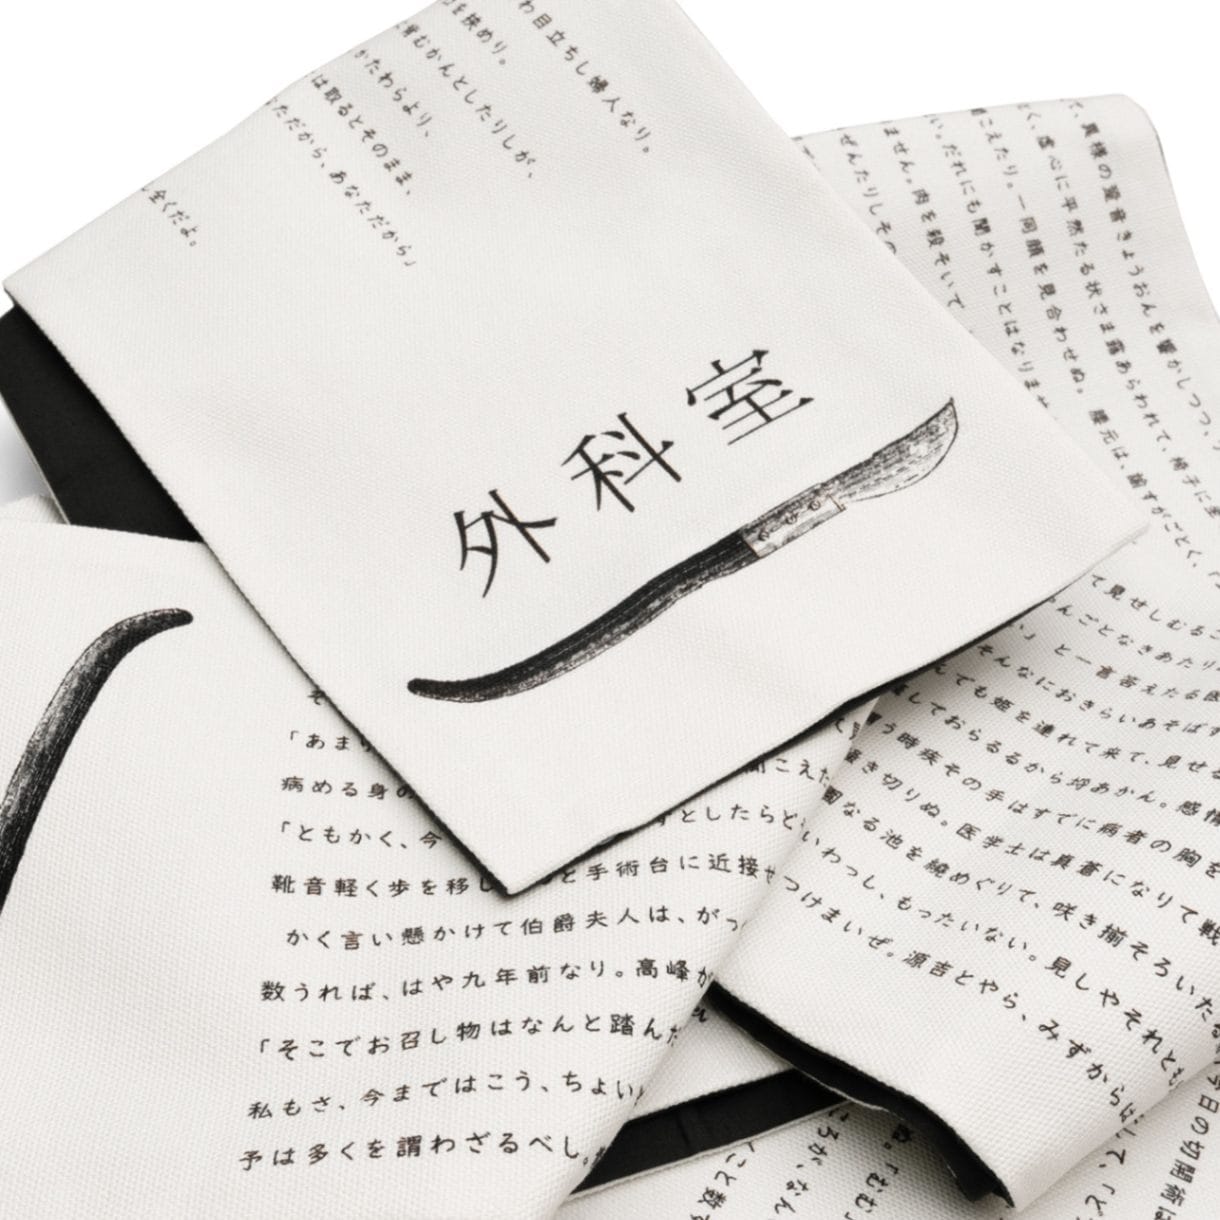 わ目立ちし婦人なり。
を挟めり。
育むかんとしたりしが、
かたわらより、
は取るとそのまま、
ただから、あなただから」
全くだよ。
外科室
て、異様の跫音きょうおんを響かしつつ、
く、虚心に平然たる状さま露あらわれて、椅子に
こえたり。一同顔を見合わせぬ。腰元は、諭すがごとく、
い。だれにも聞かすことはなりませ
ません。肉を殺そいて
ぜんたりしその
て見せしむる
んごとなきあたり
い」と一言答えたる医
そんなにおきらいあそばす
んでも姫を連れて来て、見せる
しておらるるから抑あかん。感情
う時疾その手はすでに病者の胸を
き切りぬ。医学士は真蒼になりて戦
なる池を繞めぐりて、咲き揃そろいたる
いわっし、もったいない。見しやそれとも
つけまいぜ。源吉とやら、みずからは
「あまり
病める身の
「ともかく、今
こえた
としたらど
靴音軽く歩を移し
と手術台に近接せ
かく言い懸かけて伯爵夫人は、がっ
数うれば、はや九年前なり。高峰が
「そこでお召し物はなんと踏んだ
私もさ、今まではこう、ちょい
予は多くを謂わざるべし。
こと数
ころが、なん
ぬ。「むむ
して、「ど
今日の切開術は